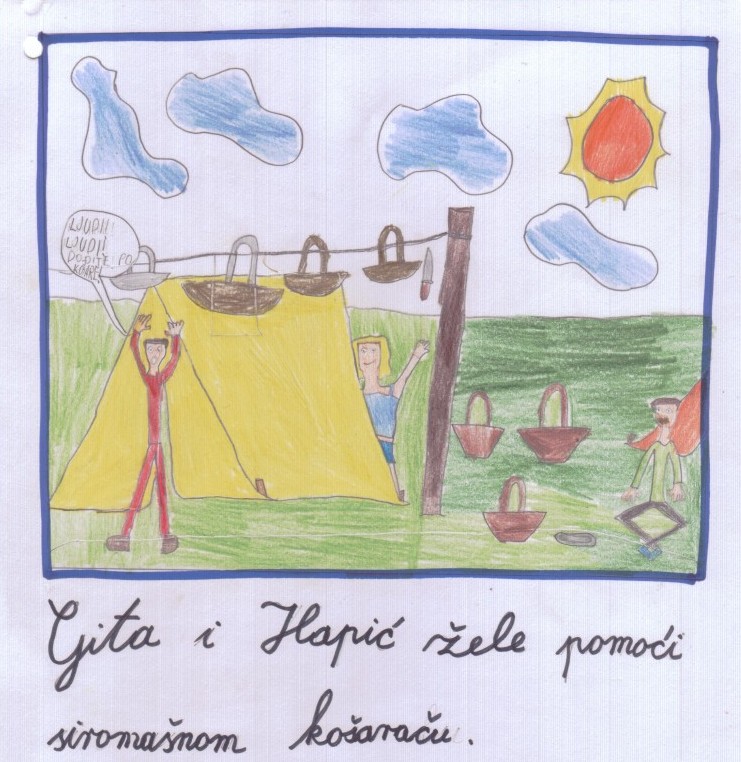 LJUDI!
LJUDI!
DOĐITE! PO
KOŠARE!
Gita i Hlapić žele pomoći
siromašnom košaraču.